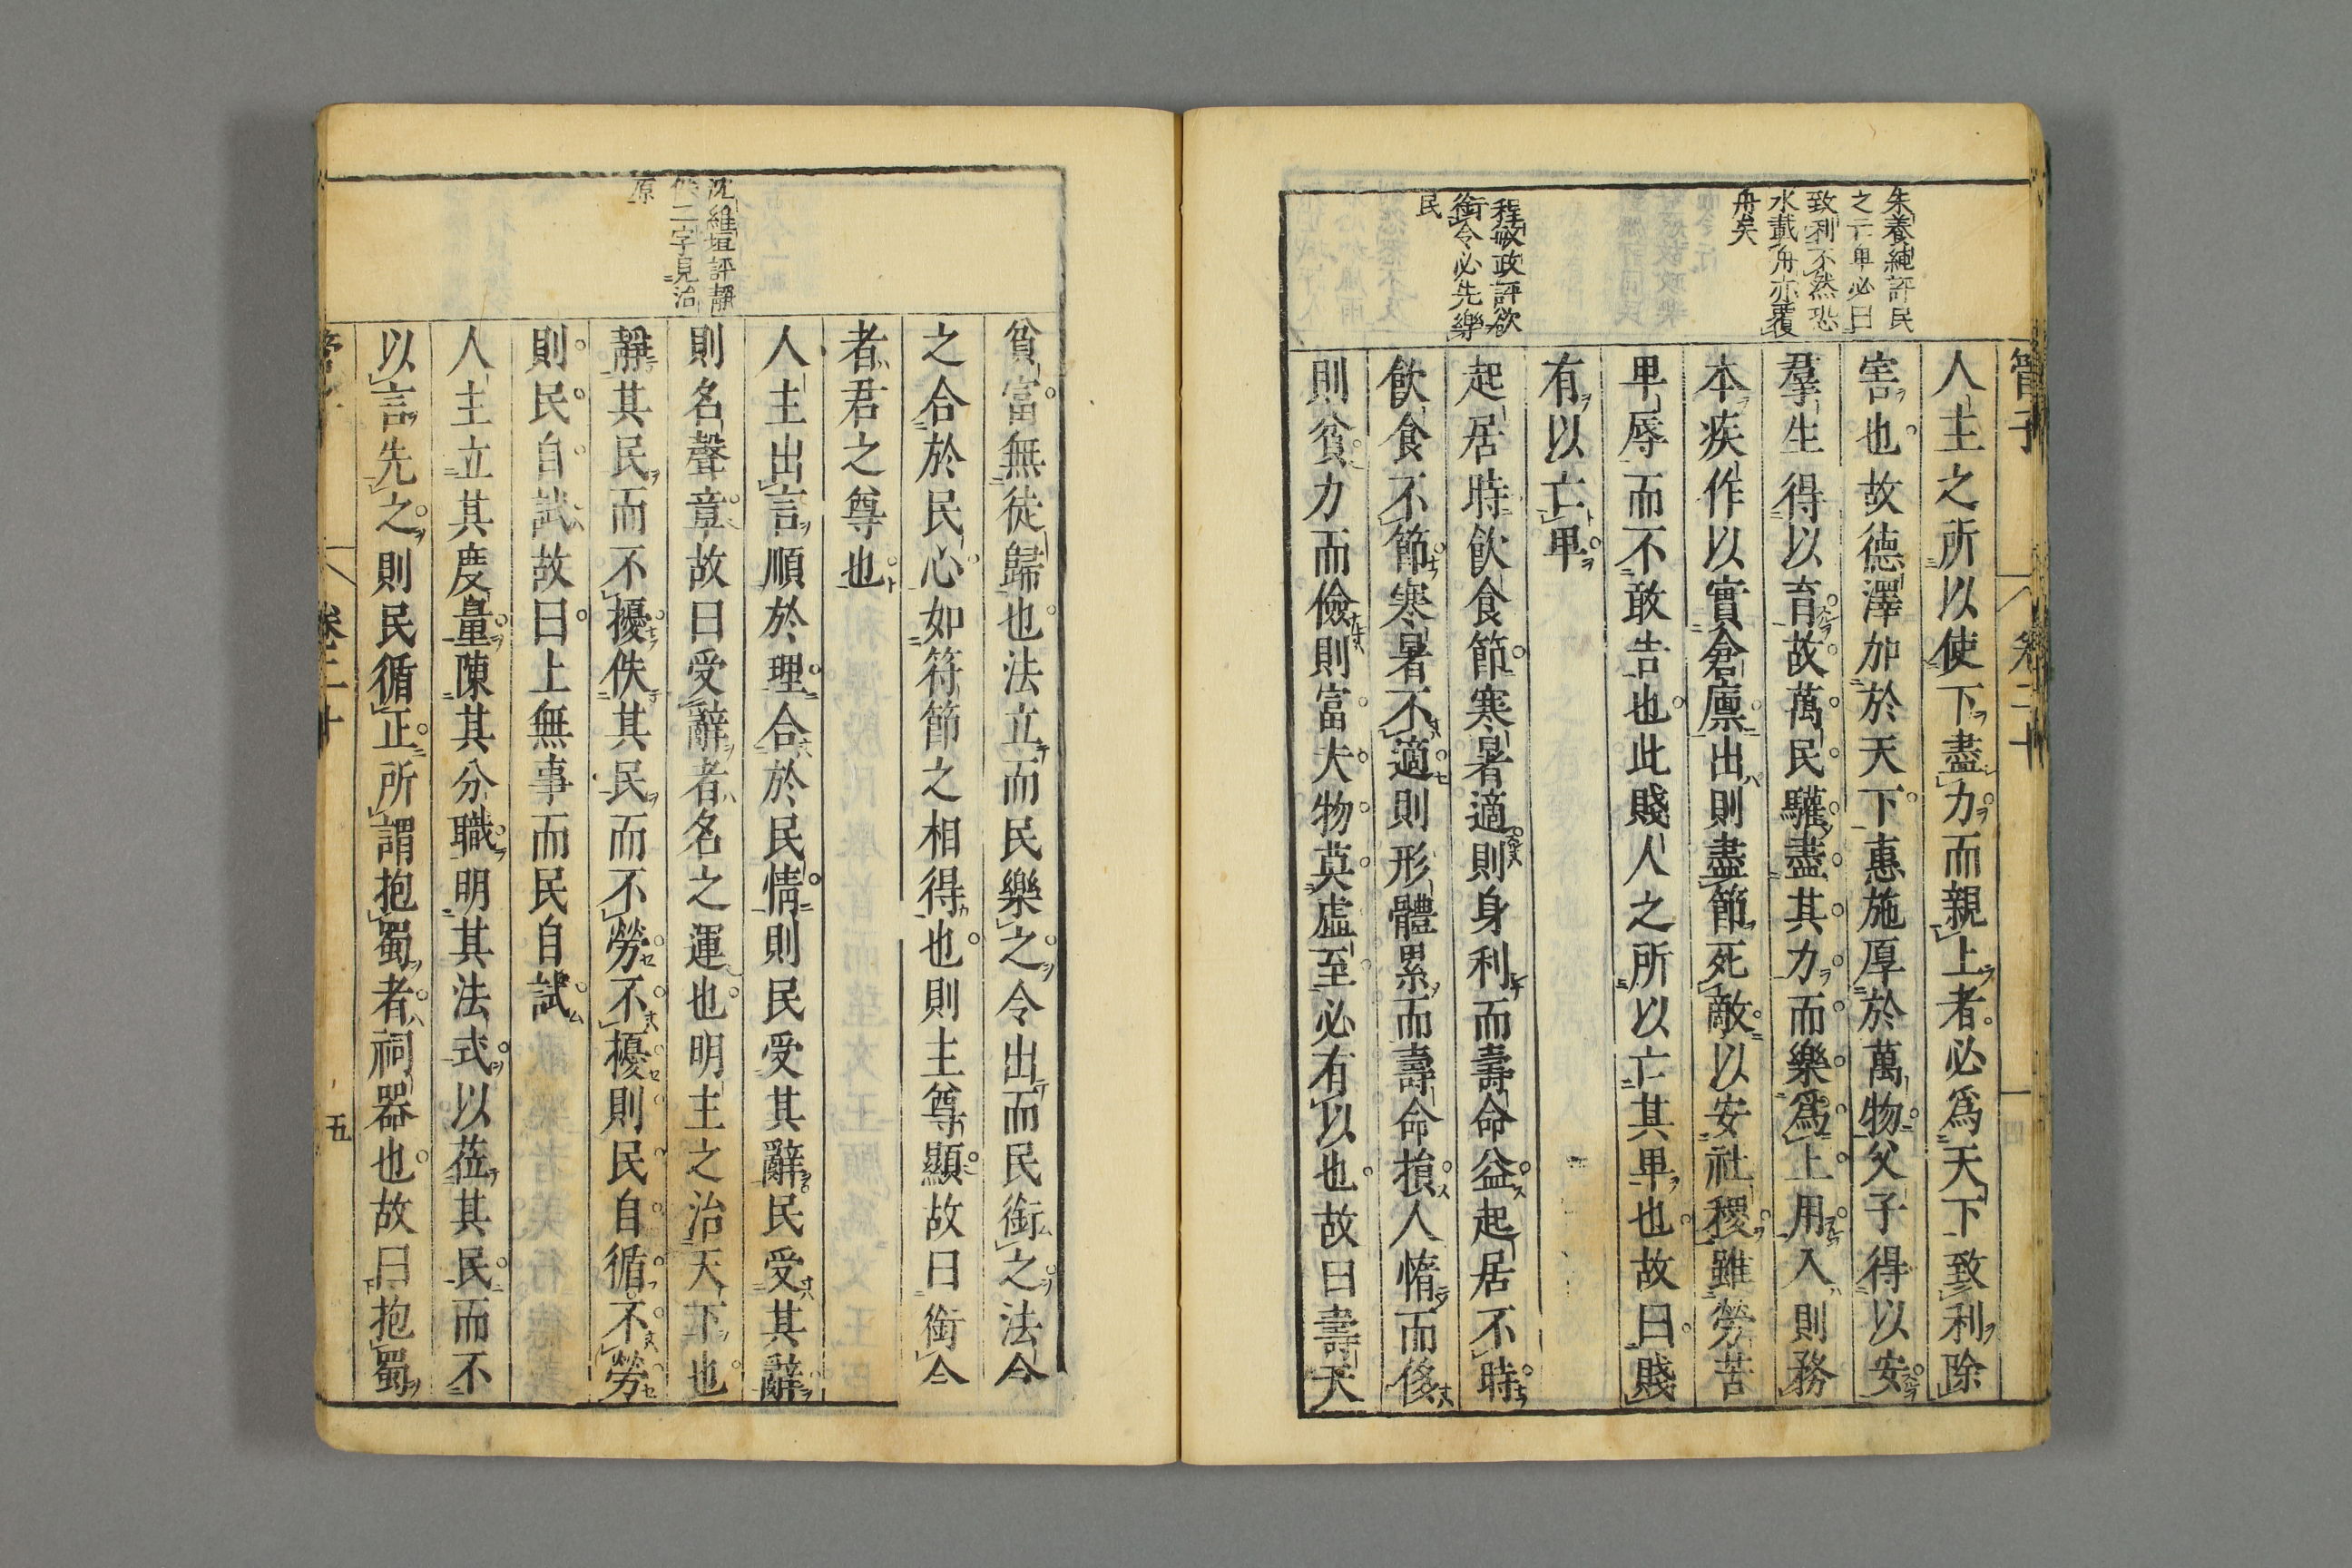 管子
卷二十
朱養純評民
之亓卑必曰
致利不然恐
水載舟亦覆
舟矣
程敏政評欲
銜令必先樂
民
人主之所以使下盡力而親上者必爲天下致利除
害也故德澤加於天下惠施厚於萬物父子得以安
羣生得以育故萬民驩盡其力而樂爲上用入則務
本疾作以實倉廩出則盡節死敵以安社稷雖勞苦
卑辱而不敢告也此賤人之所以亡其卑也故曰賤
有以亡卑
起居時飲食節寒暑適則身利而壽命益起居不時
飲食不節寒暑不適則形體累而壽命損人惰而侈
則貧力而儉則富夫物莫虛至必有以也故曰壽夭
沈維垣評靜
佚二字見治
原
貧富無徒歸也法立而民樂之令出而民銜之法令
之合於民心如符節之相得也則主尊顯故曰銜令
者君之尊也
人主出言順於理合於民情則民受其辭民受其辭
則名聲章故曰受辭者名之運也明主之治天下也
靜其民而不擾佚其民而不勞不擾則民自循不勞
則民自試故曰上無事而民自試
人主立其度量陳其分職明其法式以莅其民而不
以言先之則民循正所謂抱蜀者祠器也故曰抱蜀
卷二十
五